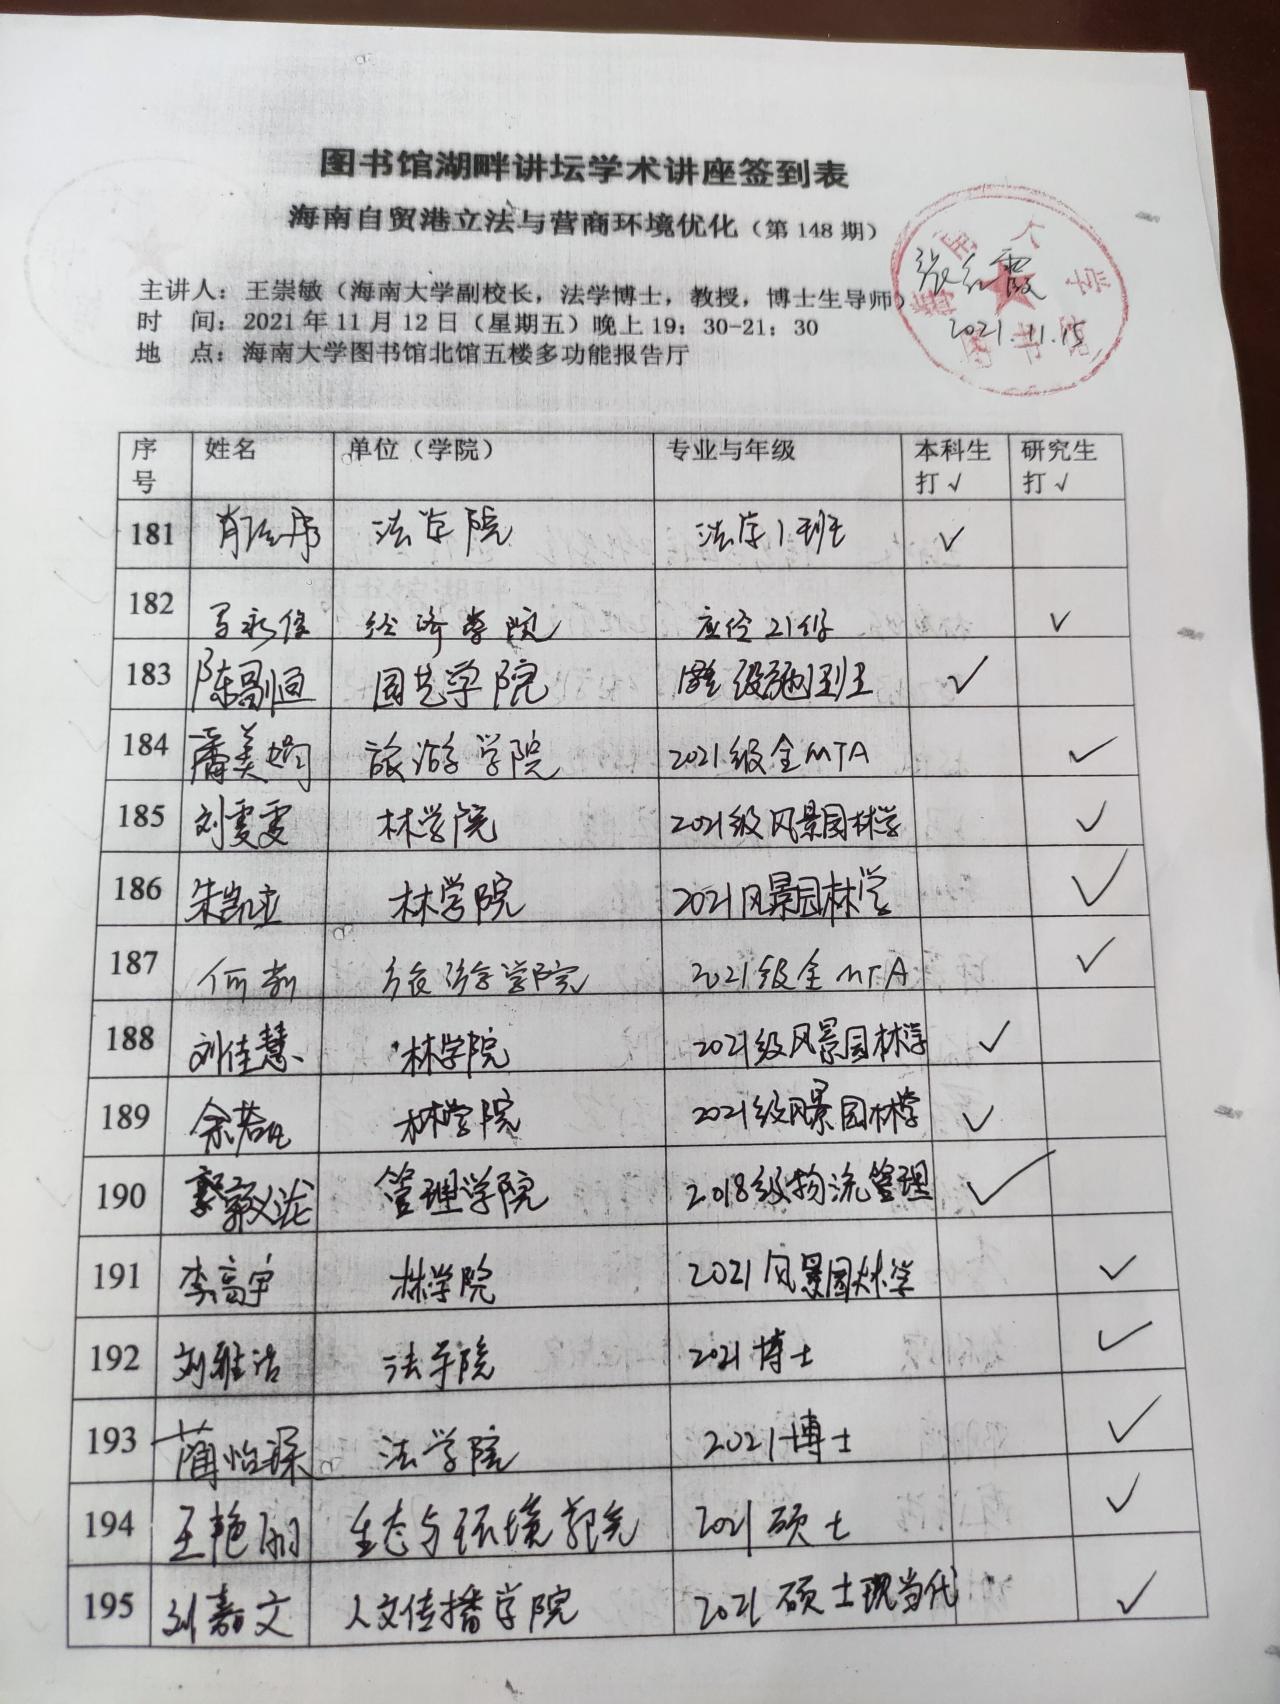 图书馆湖畔讲坛学术讲座签到表
海南自贸港立法与营商环境优化（第 148 期）
主讲人：王崇敏（海南大学副校长，法学博士，教授，博士生导师）
时 间：2021 年 11 月 12 日（星期五）晚上 19：30-21：30
地 点：海南大学图书馆北馆五楼多功能报告厅
2021.11.15
序号 姓名 单位（学院） 专业与年级 本科生打√ 研究生打√
181 法学院 法学1班 √
182 马永俊 经济学院 应经21级 √
183 园艺学院 √
184 潘美娟 旅游学院 2021级全MTA √
185 刘雯雯 林学院 2021级风景园林学 √
186 朱凯立 林学院 2021风景园林学 √
187 何莉 旅游学院 2021级全MTA √
188 刘佳慧 林学院 2021级风景园林学 √
189 林学院 2021级风景园林学 √
190 管理学院 2018级物流管理 √
191 李高宇 林学院 2021风景园林学 √
192 刘雅洁 法学院 2021博士 √
193 蔺怡琛 法学院 2021博士 √
194 王艳丽 生态与环境学院 2021硕士 √
195 刘嘉文 人文传播学院 2021硕士现当代 √